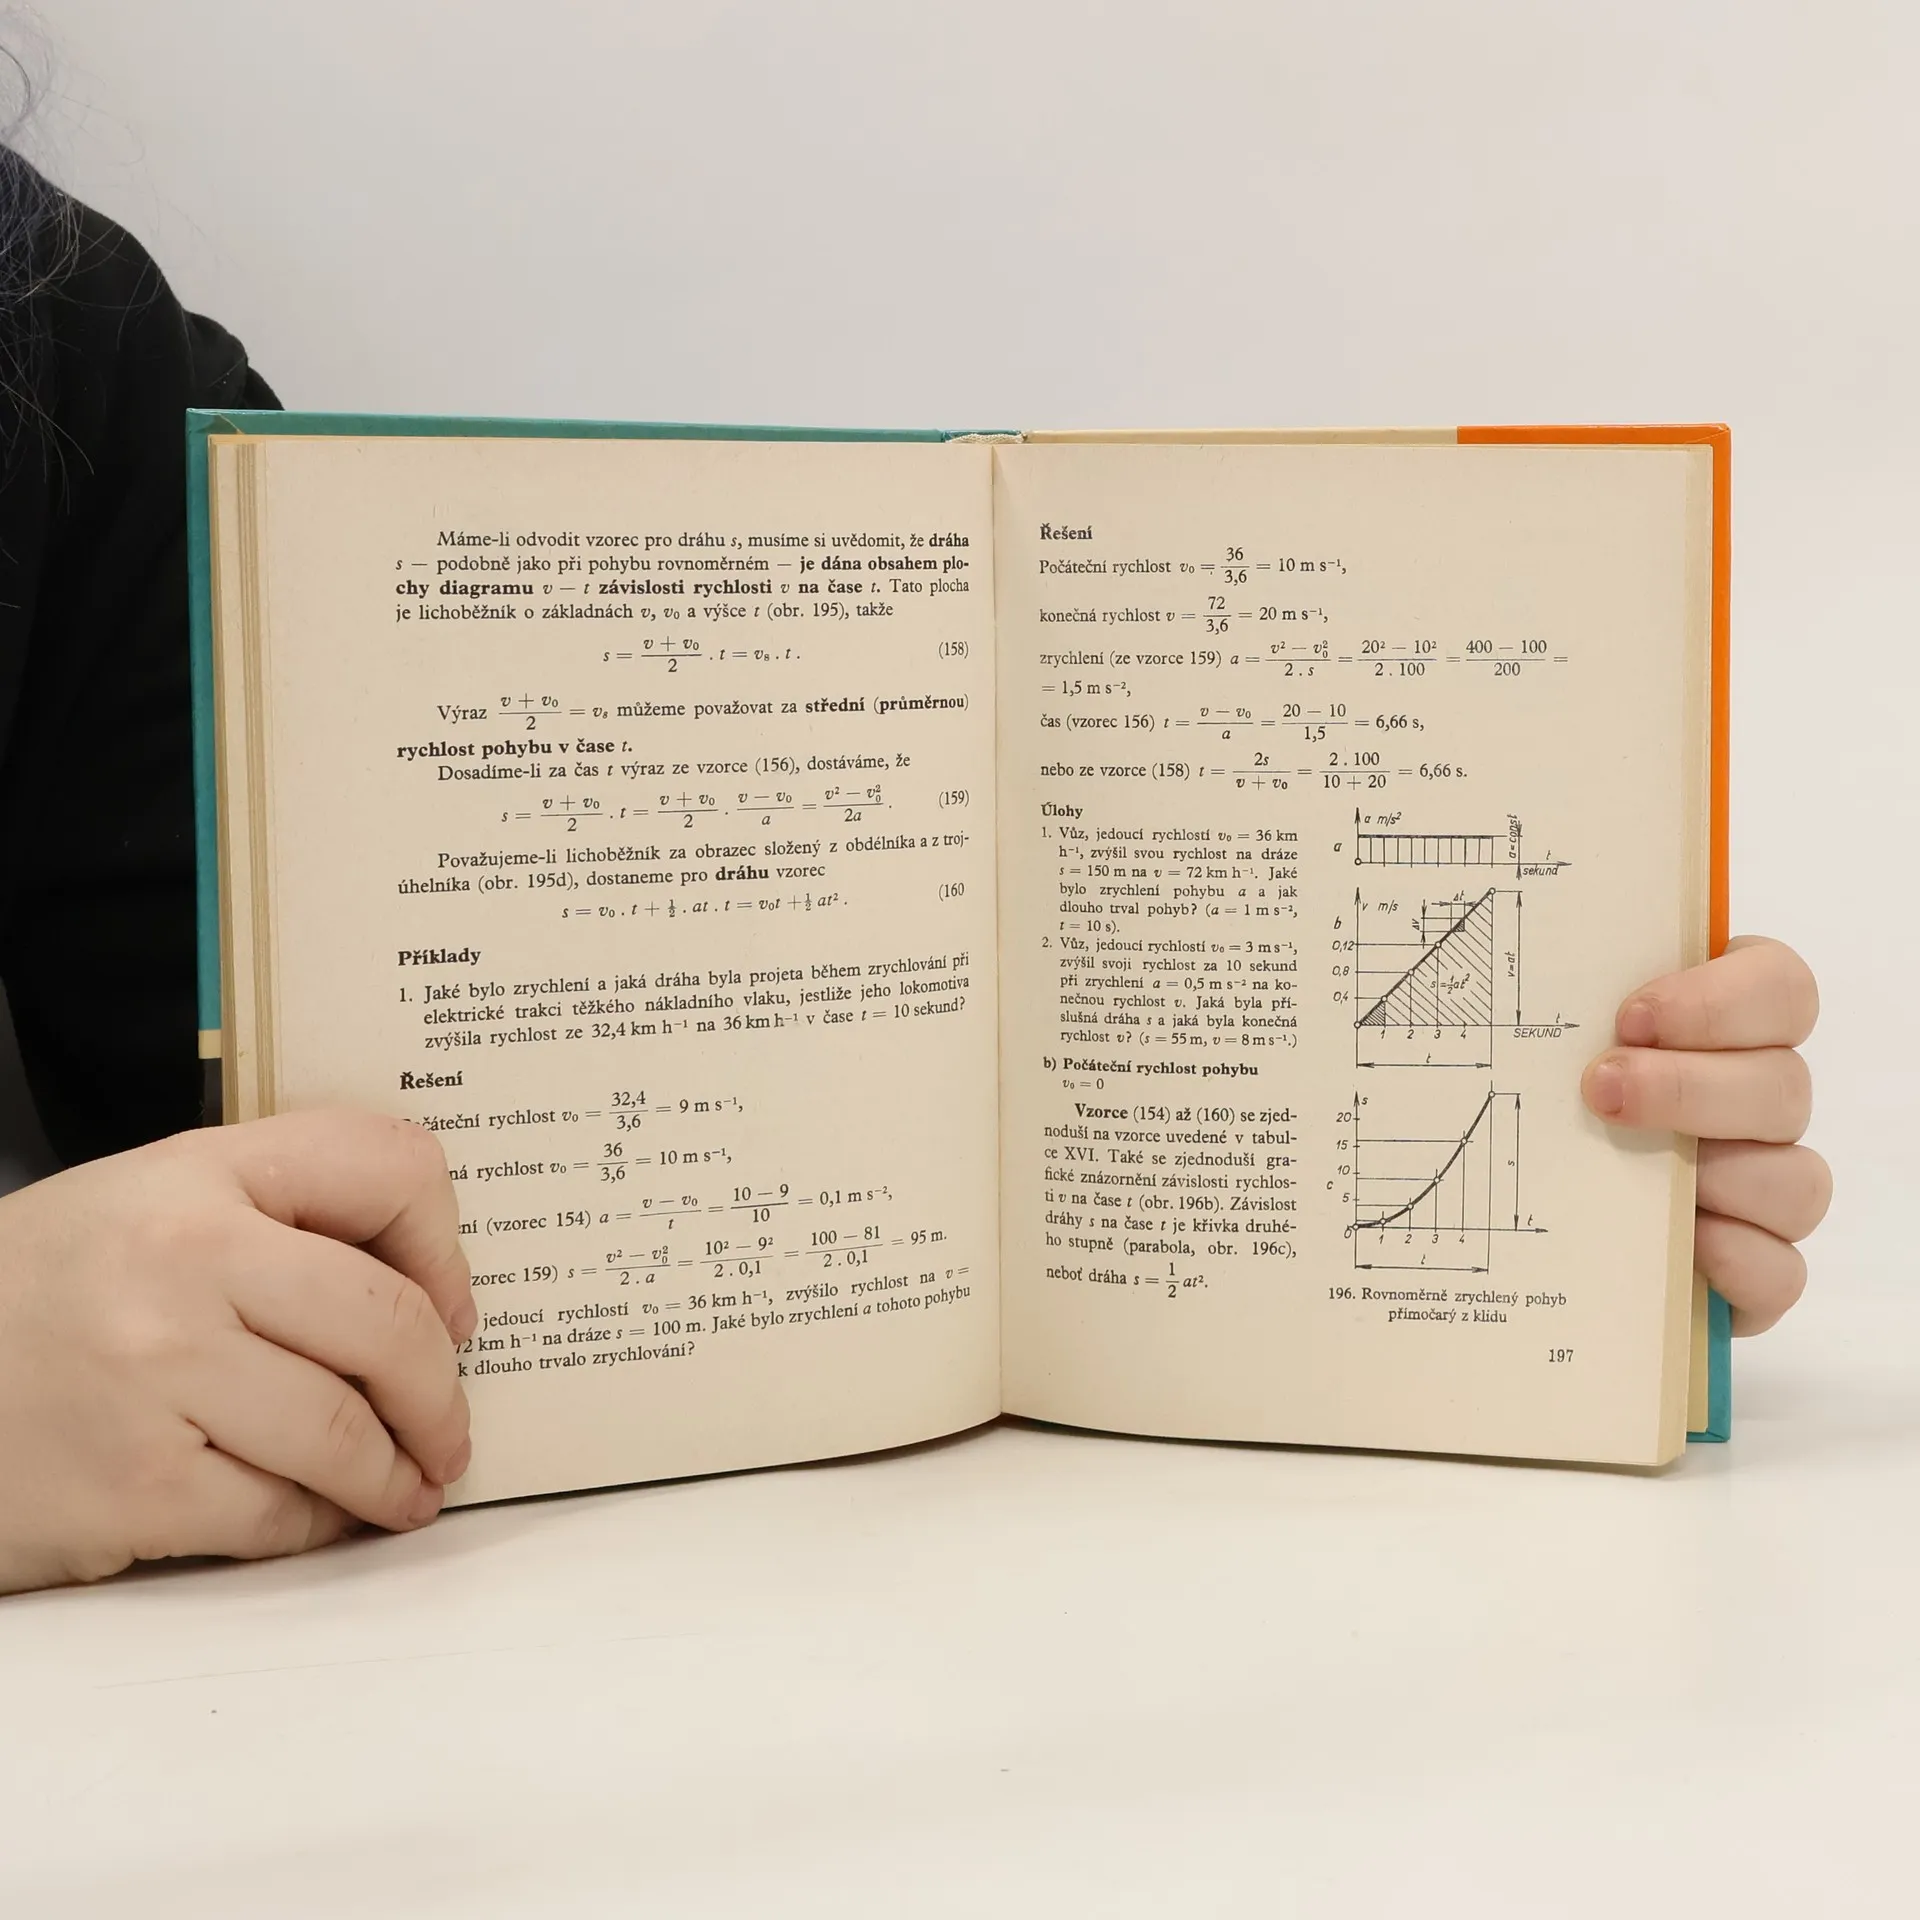 Máme-li odvodit vzorec pro dráhu s, musíme si uvědomit, že dráha
s — podobně jako při pohybu rovnoměrném — je dána obsahem plo-
chy diagramu v — t závislosti rychlosti v na čase t. Tato plocha
je lichoběžník o základnách v, v₀ a výšce t (obr. 195), takže
s = (v + v₀)/2 . t = vₛ . t . (158)
Výraz (v + v₀)/2 = vₛ můžeme považovat za střední (průměrnou)
rychlost pohybu v čase t.
Dosadíme-li za čas t výraz ze vzorce (156), dostáváme, že
s = (v + v₀)/2 . t = (v + v₀)/2 . (v — v₀)/a = (v² — v₀²)/2a . (159)
Považujeme-li lichoběžník za obrazec složený z obdélníka a z troj-
úhelníka (obr. 195d), dostaneme pro dráhu vzorec
s = v₀ . t + ½ . at . t = v₀t + ½ at² . (160
Příklady
1. Jaké bylo zrychlení a jaká dráha byla projeta během zrychlování při
elektrické trakci těžkého nákladního vlaku, jestliže jeho lokomotiva
zvýšila rychlost ze 32,4 km h⁻¹ na 36 km h⁻¹ v čase t = 10 sekund?
Řešení
čáteční rychlost v₀ = 32,4/3,6 = 9 m s⁻¹,
ná rychlost v₀ = 36/3,6 = 10 m s⁻¹,
ní (vzorec 154) a = (v — v₀)/t = (10 — 9)/10 = 0,1 m s⁻²,
zorec 159) s = (v² — v₀²)/(2 . a) = (10² — 9²)/(2 . 0,1) = (100 — 81)/(2 . 0,1) = 95 m.
jedoucí rychlostí v₀ = 36 km h⁻¹, zvýšilo rychlost na v =
72 km h⁻¹ na dráze s = 100 m. Jaké bylo zrychlení a tohoto pohybu
k dlouho trvalo zrychlování?
Řešení
Počáteční rychlost v₀ = 36/3,6 = 10 m s⁻¹,
konečná rychlost v = 72/3,6 = 20 m s⁻¹,
zrychlení (ze vzorce 159) a = (v² — v₀²)/(2 . s) = (20² — 10²)/(2 . 100) = (400 — 100)/200 =
= 1,5 m s⁻²,
čas (vzorec 156) t = (v — v₀)/a = (20 — 10)/1,5 = 6,66 s,
nebo ze vzorce (158) t = 2s/(v + v₀) = (2 . 100)/(10 + 20) = 6,66 s.
Úlohy
1. Vůz, jedoucí rychlostí v₀ = 36 km
h⁻¹, zvýšil svou rychlost na dráze
s = 150 m na v = 72 km h⁻¹. Jaké
bylo zrychlení pohybu a a jak
dlouho trval pohyb? (a = 1 m s⁻²,
t = 10 s).
2. Vůz, jedoucí rychlostí v₀ = 3 m s⁻¹,
zvýšil svoji rychlost za 10 sekund
při zrychlení a = 0,5 m s⁻² na ko-
nečnou rychlost v. Jaká byla pří-
slušná dráha s a jaká byla konečná
rychlost v? (s = 55 m, v = 8 m s⁻¹.)
b) Počáteční rychlost pohybu
v₀ = 0
Vzorce (154) až (160) se zjed-
noduší na vzorce uvedené v tabul-
ce XVI. Také se zjednoduší gra-
fické znázornění závislosti rychlos-
ti v na čase t (obr. 196b). Závislost
dráhy s na čase t je křivka druhé-
ho stupně (parabola, obr. 196c),
neboť dráha s = 1/2 at².
a m/s²
a
a=const
t
sekund
v m/s
b
Δt
Δv
0,12
0,8
0,4
s=½at²
v=at
1 2 3 4
t
SEKUND
t
s
20
15
10
c
5
0
s
1 2 3 4
t
t
196. Rovnoměrně zrychlený pohyb
přímočarý z klidu
197